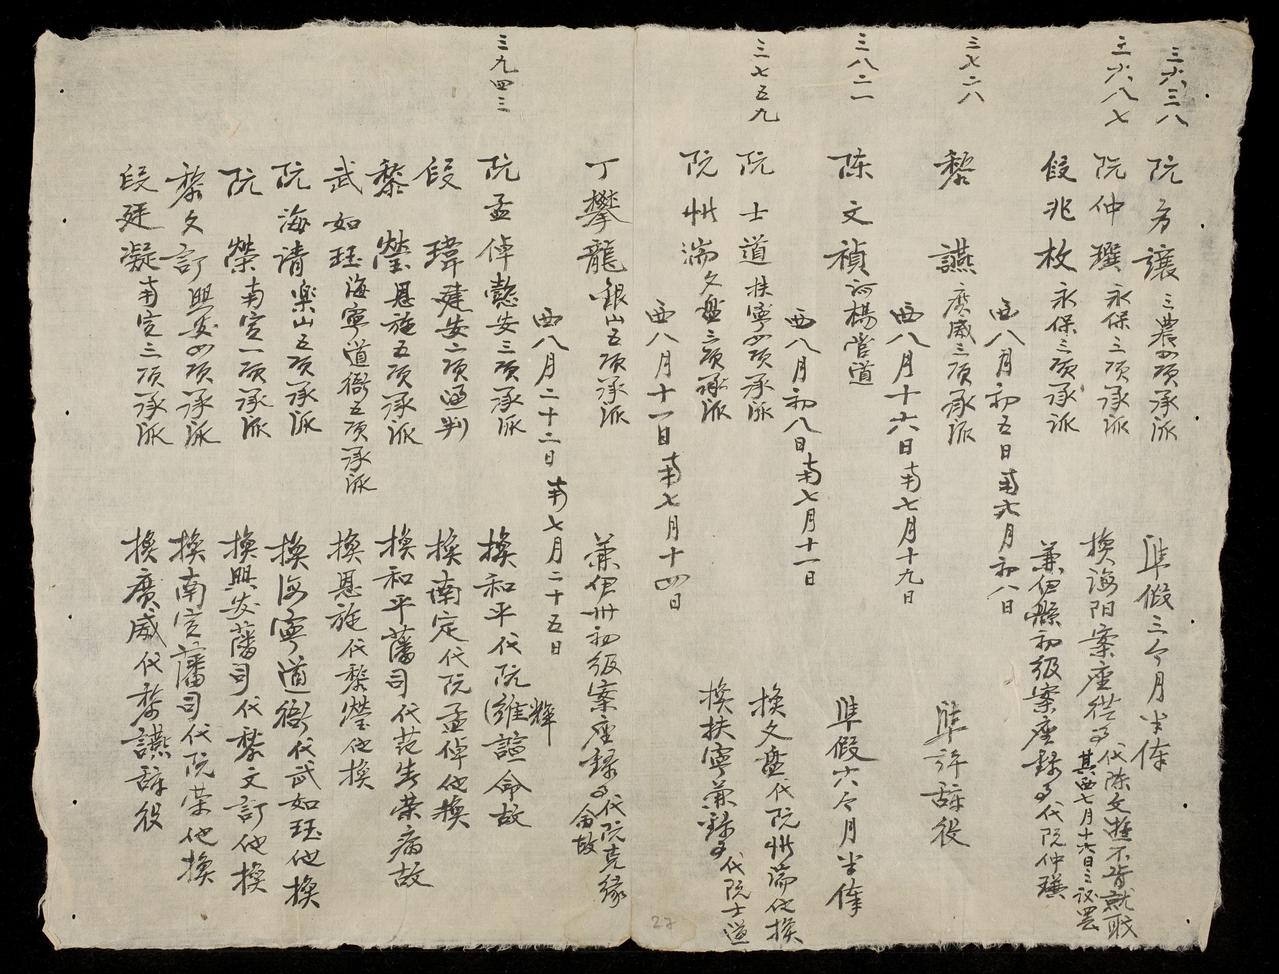 三六三八
阮 方 讓 三農四項承派
準假三个月半俸
三六八七
阮仲瓚 永保三項承派
換海陽案座從事代陳文遊不肯就職
其西七月十六日之議罷
段兆枚 永保三項承派
兼伊縣初級案座錄事代阮仲瓚
西八月初五日南六月初八日
三七二八
黎 讌 廣威三項承派
準許辞役
西八月十六日南七月十九日
三八二一
陈文禎 河楊管道
準假六个月半俸
西八月初八日南七月十一日
三七五九
阮士道 扶寧四項承派
換文盤代阮州湍他換
阮州湍 文盤三項承派
換扶寧兼錄事代阮士道
西八月十一日南七月十四日
丁攀龍 銀山五項承派
兼伊州初級案座錄事代阮克緣
命故
西八月二十二日南七月二十五日
三九四三
阮孟倬 懿安三項承派
換和平代阮維諠命故
輝
段瑋 建安二項通判
換南定代阮孟倬他換
黎瑩 恩施五項承派
換和平藩司代范告荣病故
武如珏 海寧道衙五項承派
換恩施代黎瑩他換
阮海清 樂山五項承派
換海寧道衙代武如珏他換
阮榮 南定一項承派
換興安藩司代黎文訂他換
黎文訂 興安四項承派
換南定藩司代阮荣他換
段廷凝 南定三項承派
換廣威代黎讌辞役
27